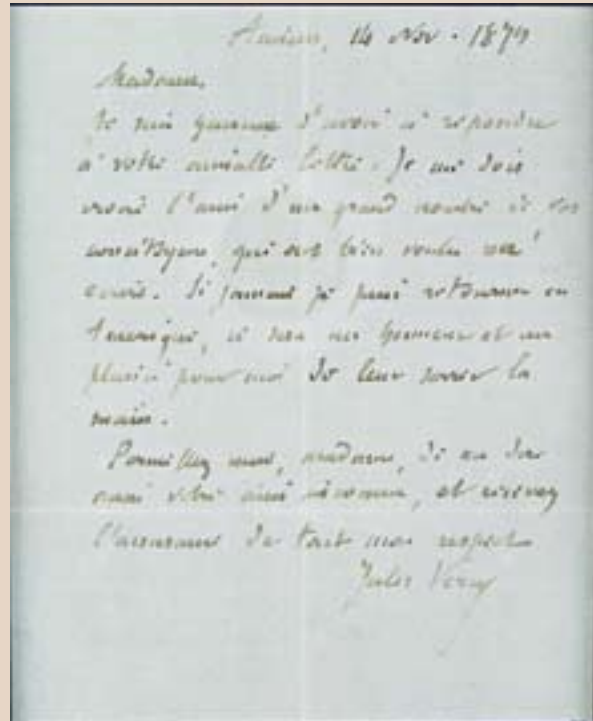 Amiens, 14 Nov. 1879
Madame,
Je suis heureux d'avoir à répondre
à votre aimable lettre. Je me sais
l'ami d'un grand nombre de vos
qui ont bien voulu m'
écrire. Si jamais je puis retourner en
Amérique, ce sera un honneur et un
plaisir pour moi de leur serrer la
main.
Permettez moi, madame, de me dire
aussi votre ami inconnu, et recevez
l'assurance de tout mon respect.
Jules Verne